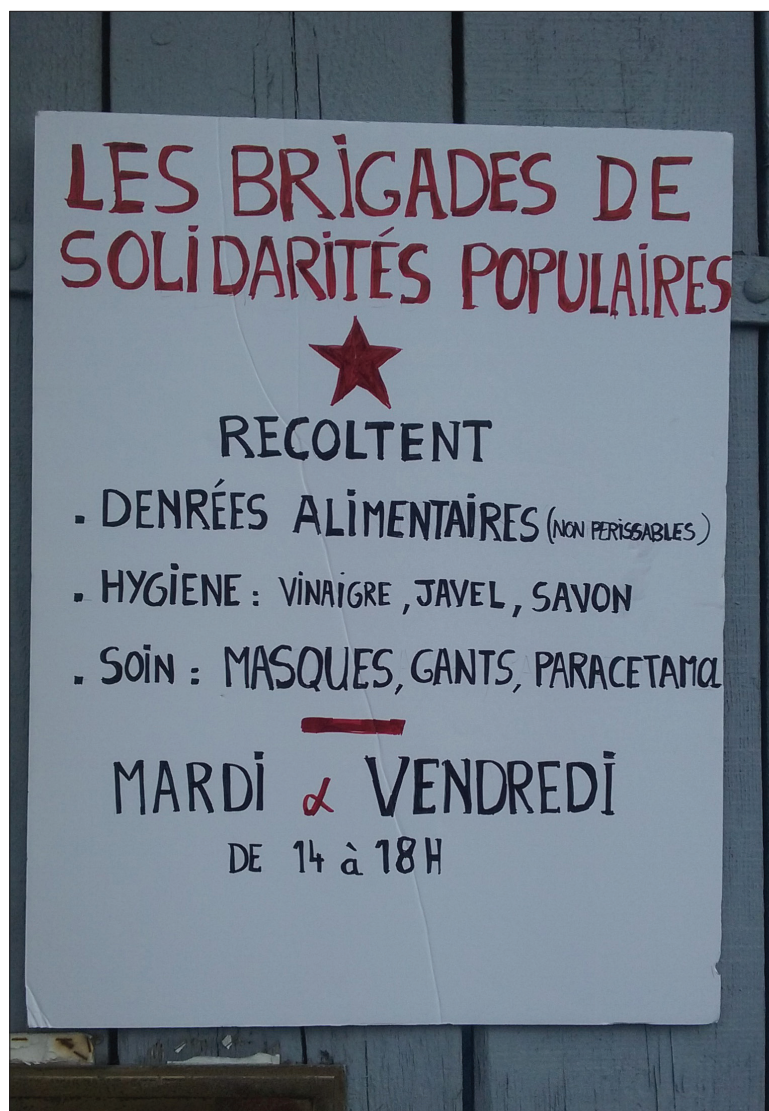 LES BRIGADES DE
SOLIDARITÉS POPULAIRES
RECOLTENT
. DENRÉES ALIMENTAIRES (NON PERISSABLES)
. HYGIENE : VINAIGRE, JAVEL, SAVON
. SOIN : MASQUES, GANTS, PARACETAMOL
MARDI & VENDREDI
DE 14 à 18H